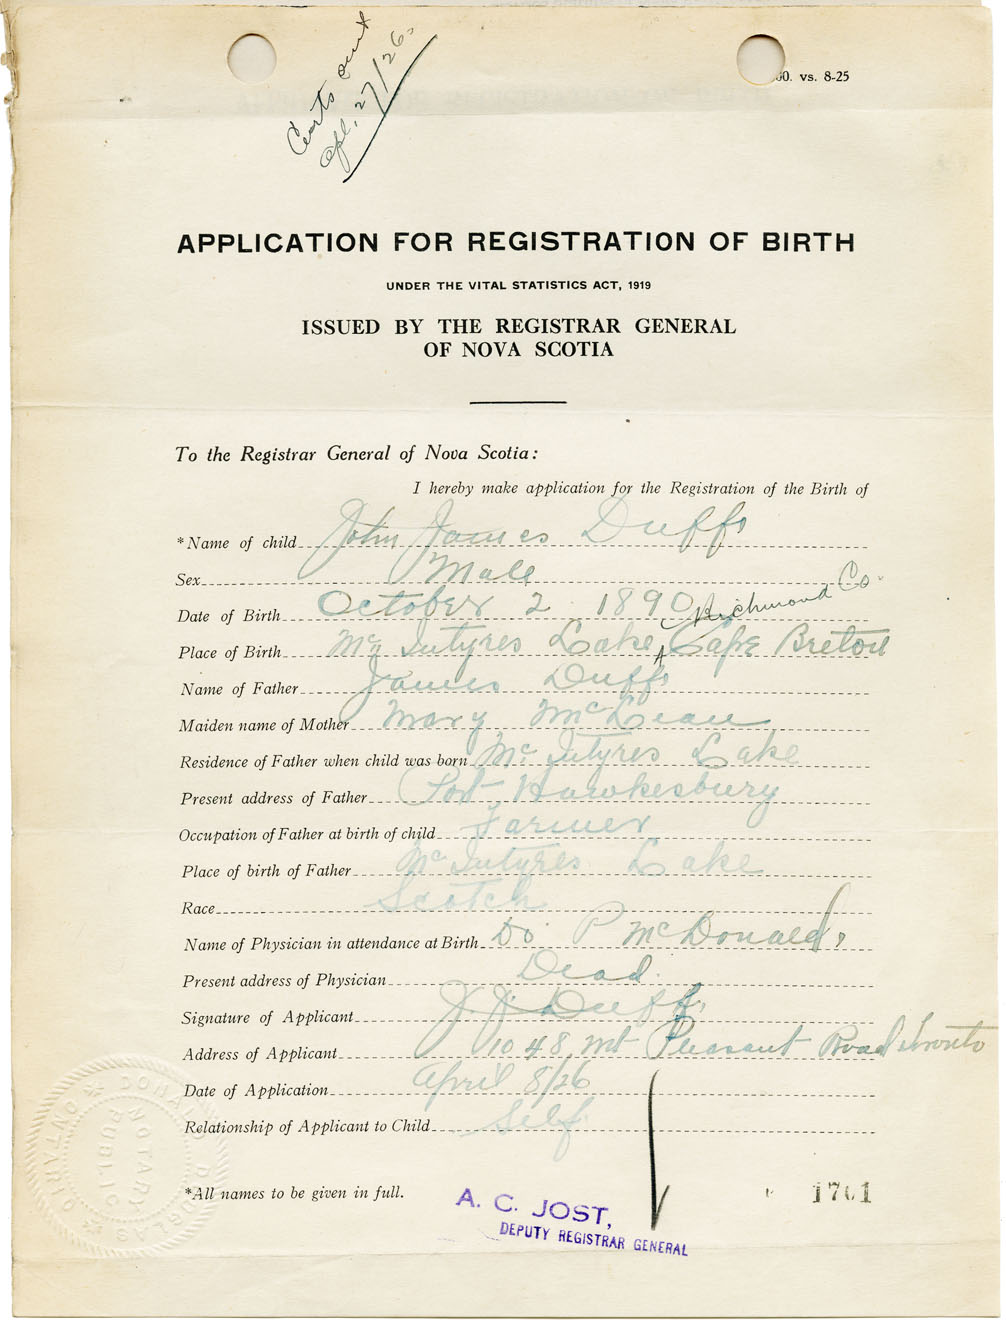 Certs sent
Apl. 27/26.
00. vs. 8-25
APPLICATION FOR REGISTRATION OF BIRTH
UNDER THE VITAL STATISTICS ACT, 1919
ISSUED BY THE REGISTRAR GENERAL
OF NOVA SCOTIA
To the Registrar General of Nova Scotia:
I hereby make application for the Registration of the Birth of
*Name of child John James Duffs
Sex Male
Date of Birth October 2 1890
Richmond Co
Place of Birth Mc Intyres Lake, Cape Breton
Name of Father James Duffs
Maiden name of Mother Mary McLean
Residence of Father when child was born Mc Intyres Lake
Present address of Father Port Hawkesbury
Occupation of Father at birth of child Farmer
Place of birth of Father Mc Intyres Lake
Race Scotch
Name of Physician in attendance at Birth Dr P McDonald
Present address of Physician Dead.
Signature of Applicant J. J. Duffs
Address of Applicant 1048 Mt Pleasant Road Toronto
Date of Application April 8/26
Relationship of Applicant to Child Self
*All names to be given in full.
1701
A. C. JOST,
DEPUTY REGISTRAR GENERAL
DONALD DOUGLAS
NOTARY PUBLIC
ONTARIO